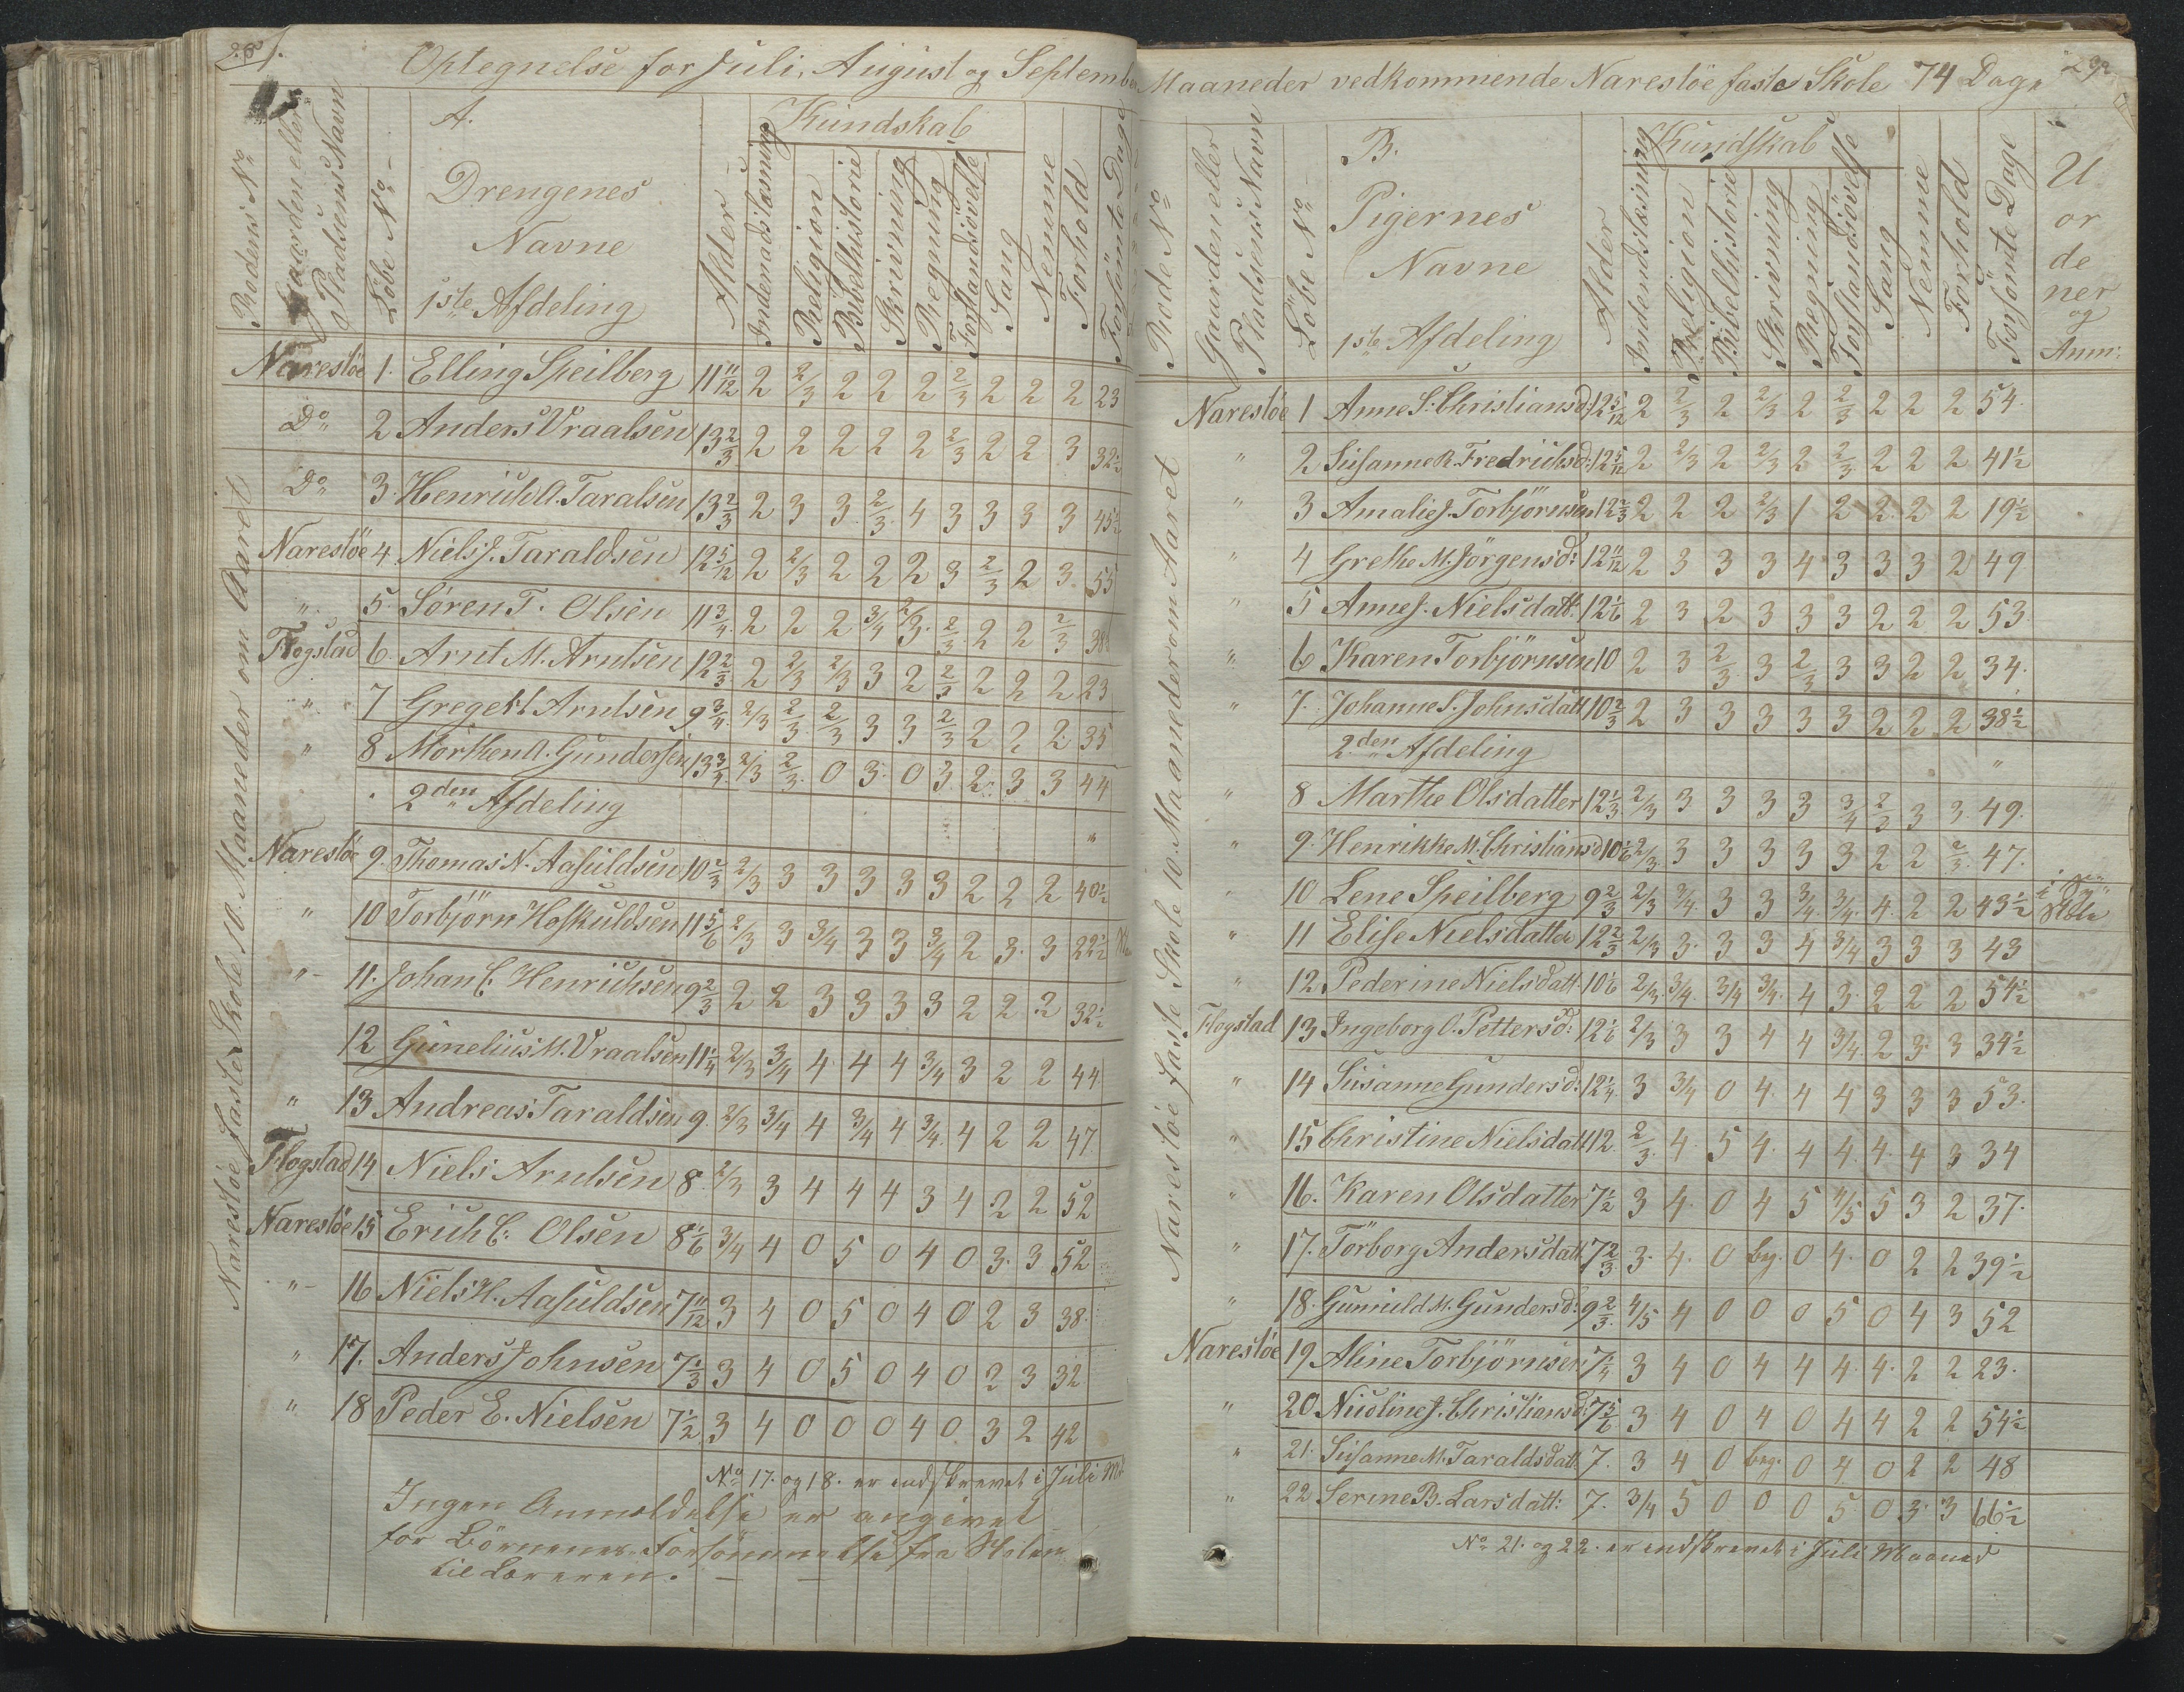 Optegnelse for Juli, August og September
Rodens No
Gaarden eller Pladsens Navn
Löbe No
A.
Drengenes
Navne
1ste Afdeling
Alder
Kundskab
Indenadslæsning
Religion
Bibelhistorie
Skrivning
Regning
Forstandsövelse
Sang
Nemme
Forhold
Forsömte Dage
Narestöe faste Skole 10. Maaneder om Aaret
Narestöe 1. Elling Speilberg 11 11/12 2 2/3 2 2 2 2/3 2 2 2 23
Do 2 Anders Vraalsen 13 2/3 2 2 2 2 2 2/3 2 2 3 32 1/2
Do 3. Henrich A. Taralsen 13 2/3 2 3 3 2/3 4 3 3 3 3 45 1/2
Narestöe 4. Niels J. Taraldsen 12 5/12 2 2/3 2 2 2 3 2/3 2 3 55
" 5. Sören T. Olsen 11 3/4 2 2 2 3/4 2/3 2/3 2 2 2/3
Flogstad 6. Arnt M. Arntsen 12 2/3 2 2/3 2/3 3 2 2/3 2 2 2 23
" 7 Gregert Arntsen 9 3/4 2/3 2/3 2/3 3 3 2/3 2 2 2 35
" 8 Morthen A. Gundersen 13 3/4 2/3 2/3 0 3 0 3 2 3 3 44
2den Afdeling
Narestöe 9. Thomas N. Aasuldsen 10 2/3 2/3 3 3 3 3 3 2 2 2 40 1/2
" 10 Torbjörn Hoskuldsen 11 5/6 2/3 3 3/4 3 3 3/4 2 3 3 22 1/2
" 11. Johan C. Henrichsen 9 2/3 2 2 3 3 3 3 2 2 2 32 1/2
12 Gunelius M. Vraalsen 11 1/4 2/3 3/4 4 4 4 3/4 3 2 2 44
" 13 Andreas Taraldsen 9. 2/3 3/4 4 3/4 4 3/4 4 2 2 47
Flogstad 14 Niels Arntsen 8 2/3 3 4 4 4 3 4 2 2 52
Narestöe 15 Erich C. Olsen 8 1/6 3/4 4 0 5 0 4 0 3 3 52
" 16 Niels H. Aasuldsen 7 11/12 3 4 0 5 0 4 0 2 3 38
" 17. Anders Johnsen 7 1/3 3 4 0 5 0 4 0 2 3 32
" 18 Peder E. Nielsen 7 1/2 3 4 0 0 0 4 0 3 2 42
No 17. og 18. er indskrevet i Juli Md
Ingen Anmeldelse er angivet
for Börnenes Forsömmelse fra Skolen
til Læreren.
Maaneder vedkommende Narestöe faste Skole 74 Dage
Rode No
Gaarden eller Pladsens Navn
Löbe No
B.
Pigernes
Navne
1ste Afdeling
Alder
Kundskab
Indendslæsning
Religion
Bibelhistorie
Skrivning
Regning
Forstandsövelse
Sang
Nemme
Forhold
Forsömte Dage
U
or
de
ner
og
Anm:
Narestöe faste Skole 10. Maaneder om Aaret
Narestöe 1 Anne S. Christiansd: 12 5/12 2 2/3 2 2/3 2 2/3 2 2 2 54.
" 2 Susanne R. Fredrichsd: 12 5/12 2 2/3 2 2/3 2 2/3 2 2 2 41 1/2
" 3 Amalie J. Torbjörnsen 12 2/3 2 2 2 2/3 1 2 2 2 2 19 1/2
" 4 Grethe M. Jörgensd: 12 11/12 2 3 3 3 4 3 3 3 2 49
" 5 Anne J. Nielsdatt: 12 1/6 2 3 2 3 3 3 2 2 2 53
" 6 Karen Torbjörnsen 10 2 3 2/3 3 2/3 3 3 2 2 34.
" 7. Johanne S. Johnsdatt 10 2/3 2 3 3 3 3 3 2 2 2 38 1/2
2den Afdeling
" 8 Marthe Olsdatter 12 1/3 2/3 3 3 3 3 3/4 2/3 3 3 49.
" 9. Henrikke M. Christiansd 10 1/6 2/3 3 3 3 3 3 2 2 2/3 47.
" 10 Lene Speilberg 9 2/3 2/3 3/4 3 3 3/4 3/4 4 2 2 43 1/2
" 11 Elise Nielsdatter 12 2/3 2/3 3 3 3 4 3/4 3 3 3 43
" 12. Pederine Nielsdatt 10 1/6 2/3 3/4 3/4 3/4 4 3 2 2 2 54 1/2
Flogstad 13 Ingeborg O. Pettersd: 12 1/6 2/3 3 3 4 4 3/4 2 3 3 34 1/2
" 14 Susanne Gundersd: 12 1/4 3 3/4 0 4 4 4 3 3 3 53.
" 15 Christine Nielsdatt 12 2/3 4 5 4 4 4 4 4 3 34
" 16. Karen Olsdatter 7 1/2 3 4 0 4 5 4/5 5 3 2 37.
" 17. Torborg Andersdatt. 7 2/3 3 4 0 bg. 0 4 0 2 2 39 1/2
" 18. Gunuld M. Gundersd: 9 2/3 4/5 4 0 0 0 5 0 4 3 52
Narestöe 19 Aline Torbjörnsen 7 1/4 3 4 0 4 4 4 4 2 2 23.
" 20 Nicoline J. Christiansd: 7 5/6 3 4 0 4 0 4 4 2 2 54 1/2
" 21. Susanne M. Taraldsdatt 7. 3 4 0 beg. 0 4 0 2 2 48
" 22 Serine B. Larsdatt: 7. 3/4 5 0 0 0 5 0 3 3 66 1/2
No 21. og 22. er indskrevet i Juli Maaned